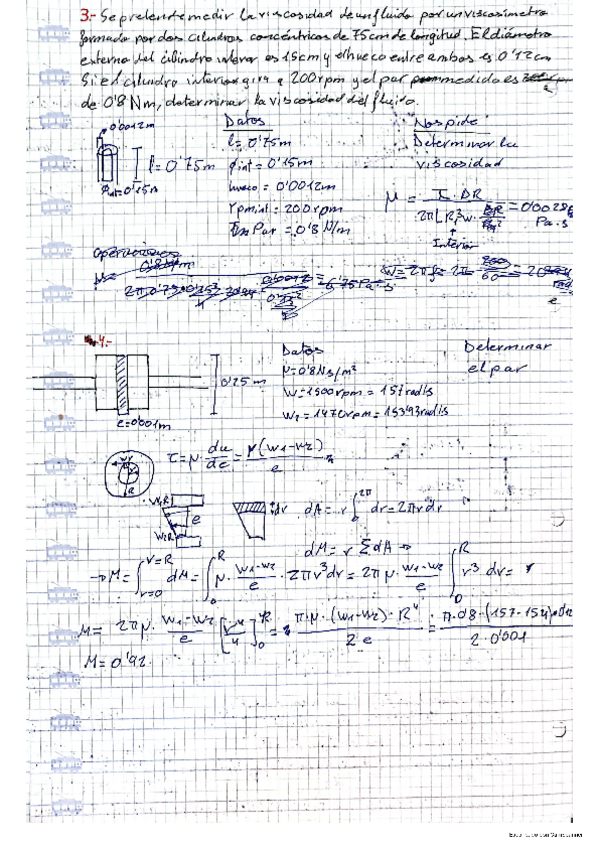 3.- Se pretende medir la viscosidad de un fluido por un viscosimetro
formado por dos cilindros concéntricos de 75cm de longitud. El diámetro
externo del cilindro interior es 15cm y el hueco entre ambos es 0'12cm
Si el cilindro interior gira a 200rpm y el par medido es
de 0'8 Nm, determinar la viscosidad del fluido.
0'0012m
l = 0'75m
Øint=0'15m
Datos
l = 0'75m
Øint = 0'15m
hueco = 0'0012m
rpm int = 200rpm
Par = 0'8 N/m
Nos pide
Determinar la
viscosidad
Interior
Pa·s
operaciones
4.-
0'25m
e=0'001m
Datos
μ=0'8Ns/m²
W1=1500rpm = 157rad/s
W2=1470rpm=153'93rad/s
Determinar
el par
τ=μ·du/de=μ(w1-w2)/e
W1R
W2R
e
dr
dA=r∫₀^2π dr=2πrdr
dM=r τdA →
→M=∫_{r=0}^{r=R} dM=∫₀^R μ·(w1-w2)/e·2πr³dr=2πμ·(w1-w2)/e ∫₀^R r³dr=
M=2πμ·(w1-w2)/e [r⁴/4]₀^R=π·μ·(w1-w2)·R⁴/2e
2·0'001
M=0'92